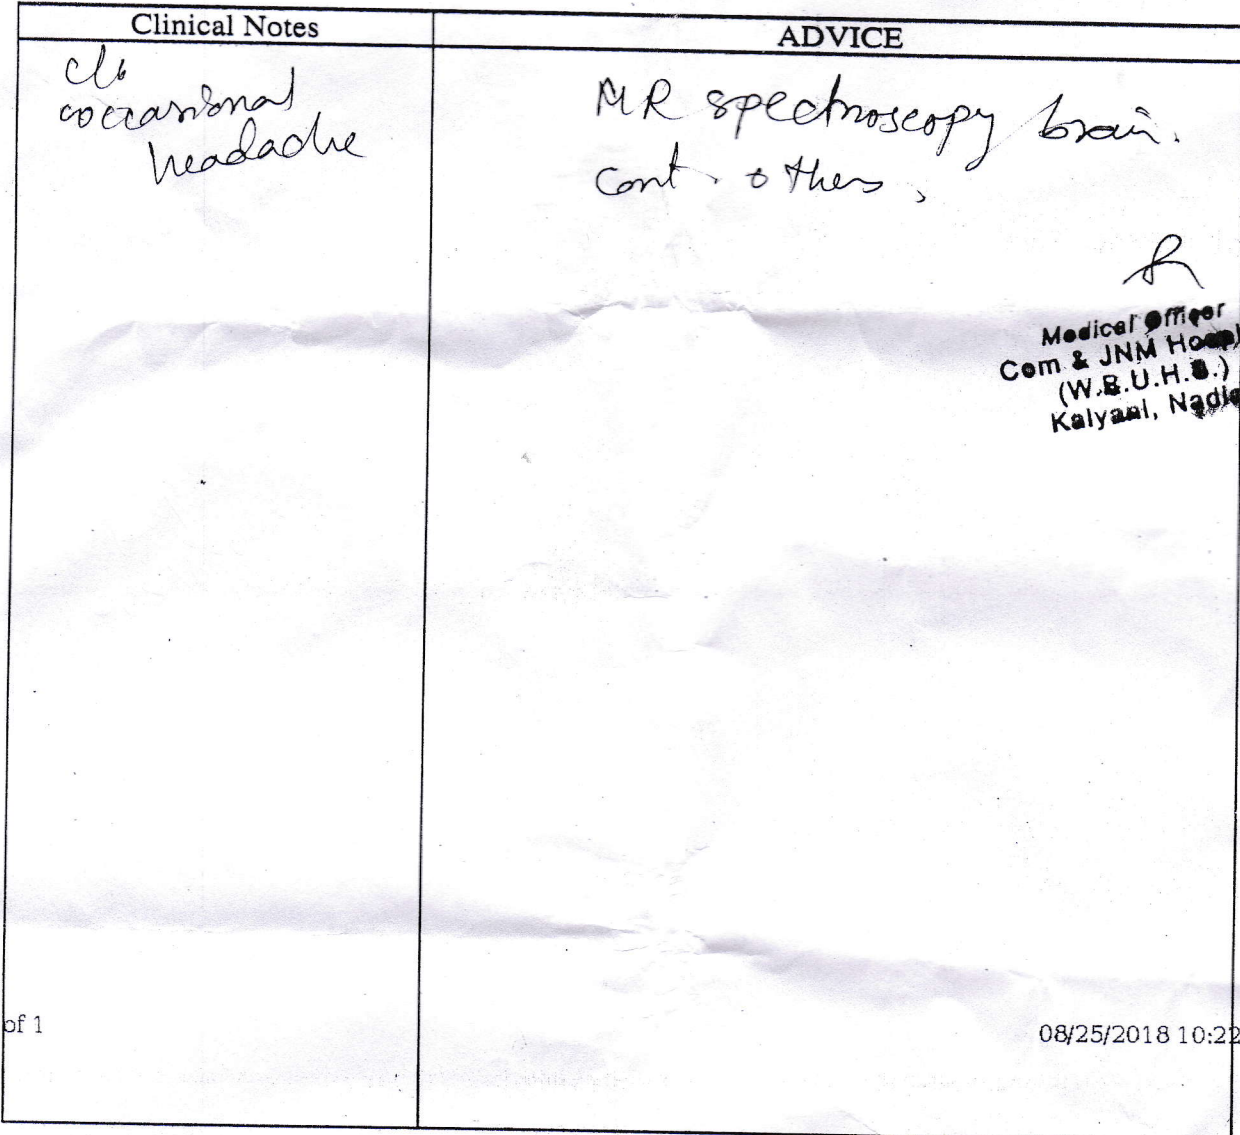 Clinical Notes
ADVICE
c/o
occasional
headache
MR spectroscopy brain.
Cont. others,
Medical Officer
Com & JNM Hosp
(W.B.U.H.S.)
Kalyani, Nadia
of 1
08/25/2018 10:22